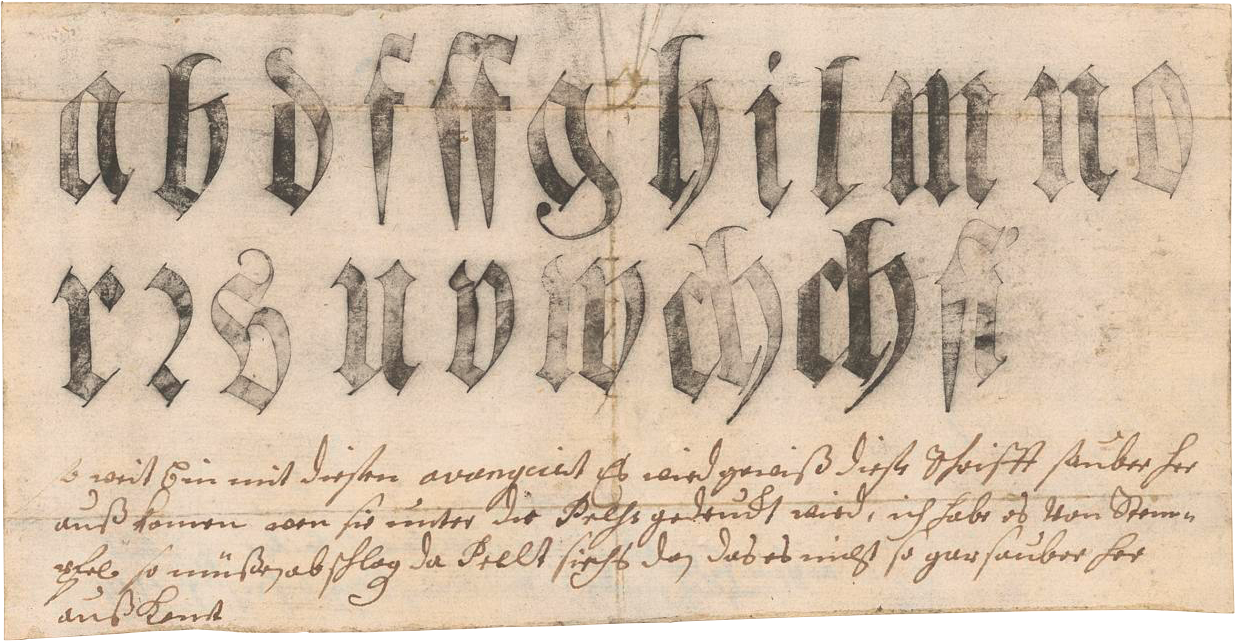 a b d f ff g h i l m n o
r ꝛ s u v w ch ch ſt
so weit bin mit dießen avancirt Es wird gewiß dieße Schrifft sauber her
auß komen wen sie unter der Preße gedruckt wird, ich habe es von Stem=
pfel so müßen abschlag da stelt sichs den das es nicht so gar sauber her
auß komt